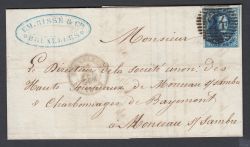 EM. RISSE & CIE
BRUXELLES
Monsieur
Le Directeur de la Société anon. des
Hauts fourneaux de Monceau s/ Sambre
& Charbonnages de Baymont
à Monceau s/ Sambre